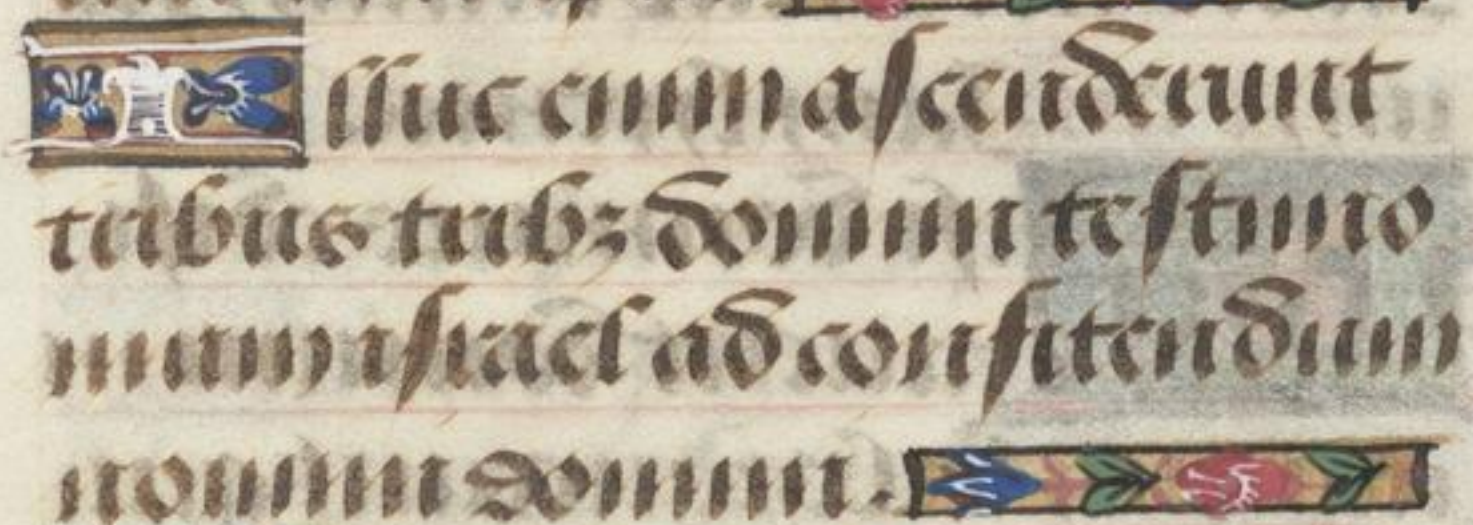 Illuc enim ascenderunt
tribus tribꝫ domini testimo
nium israel ad confitendum
nomini domini.